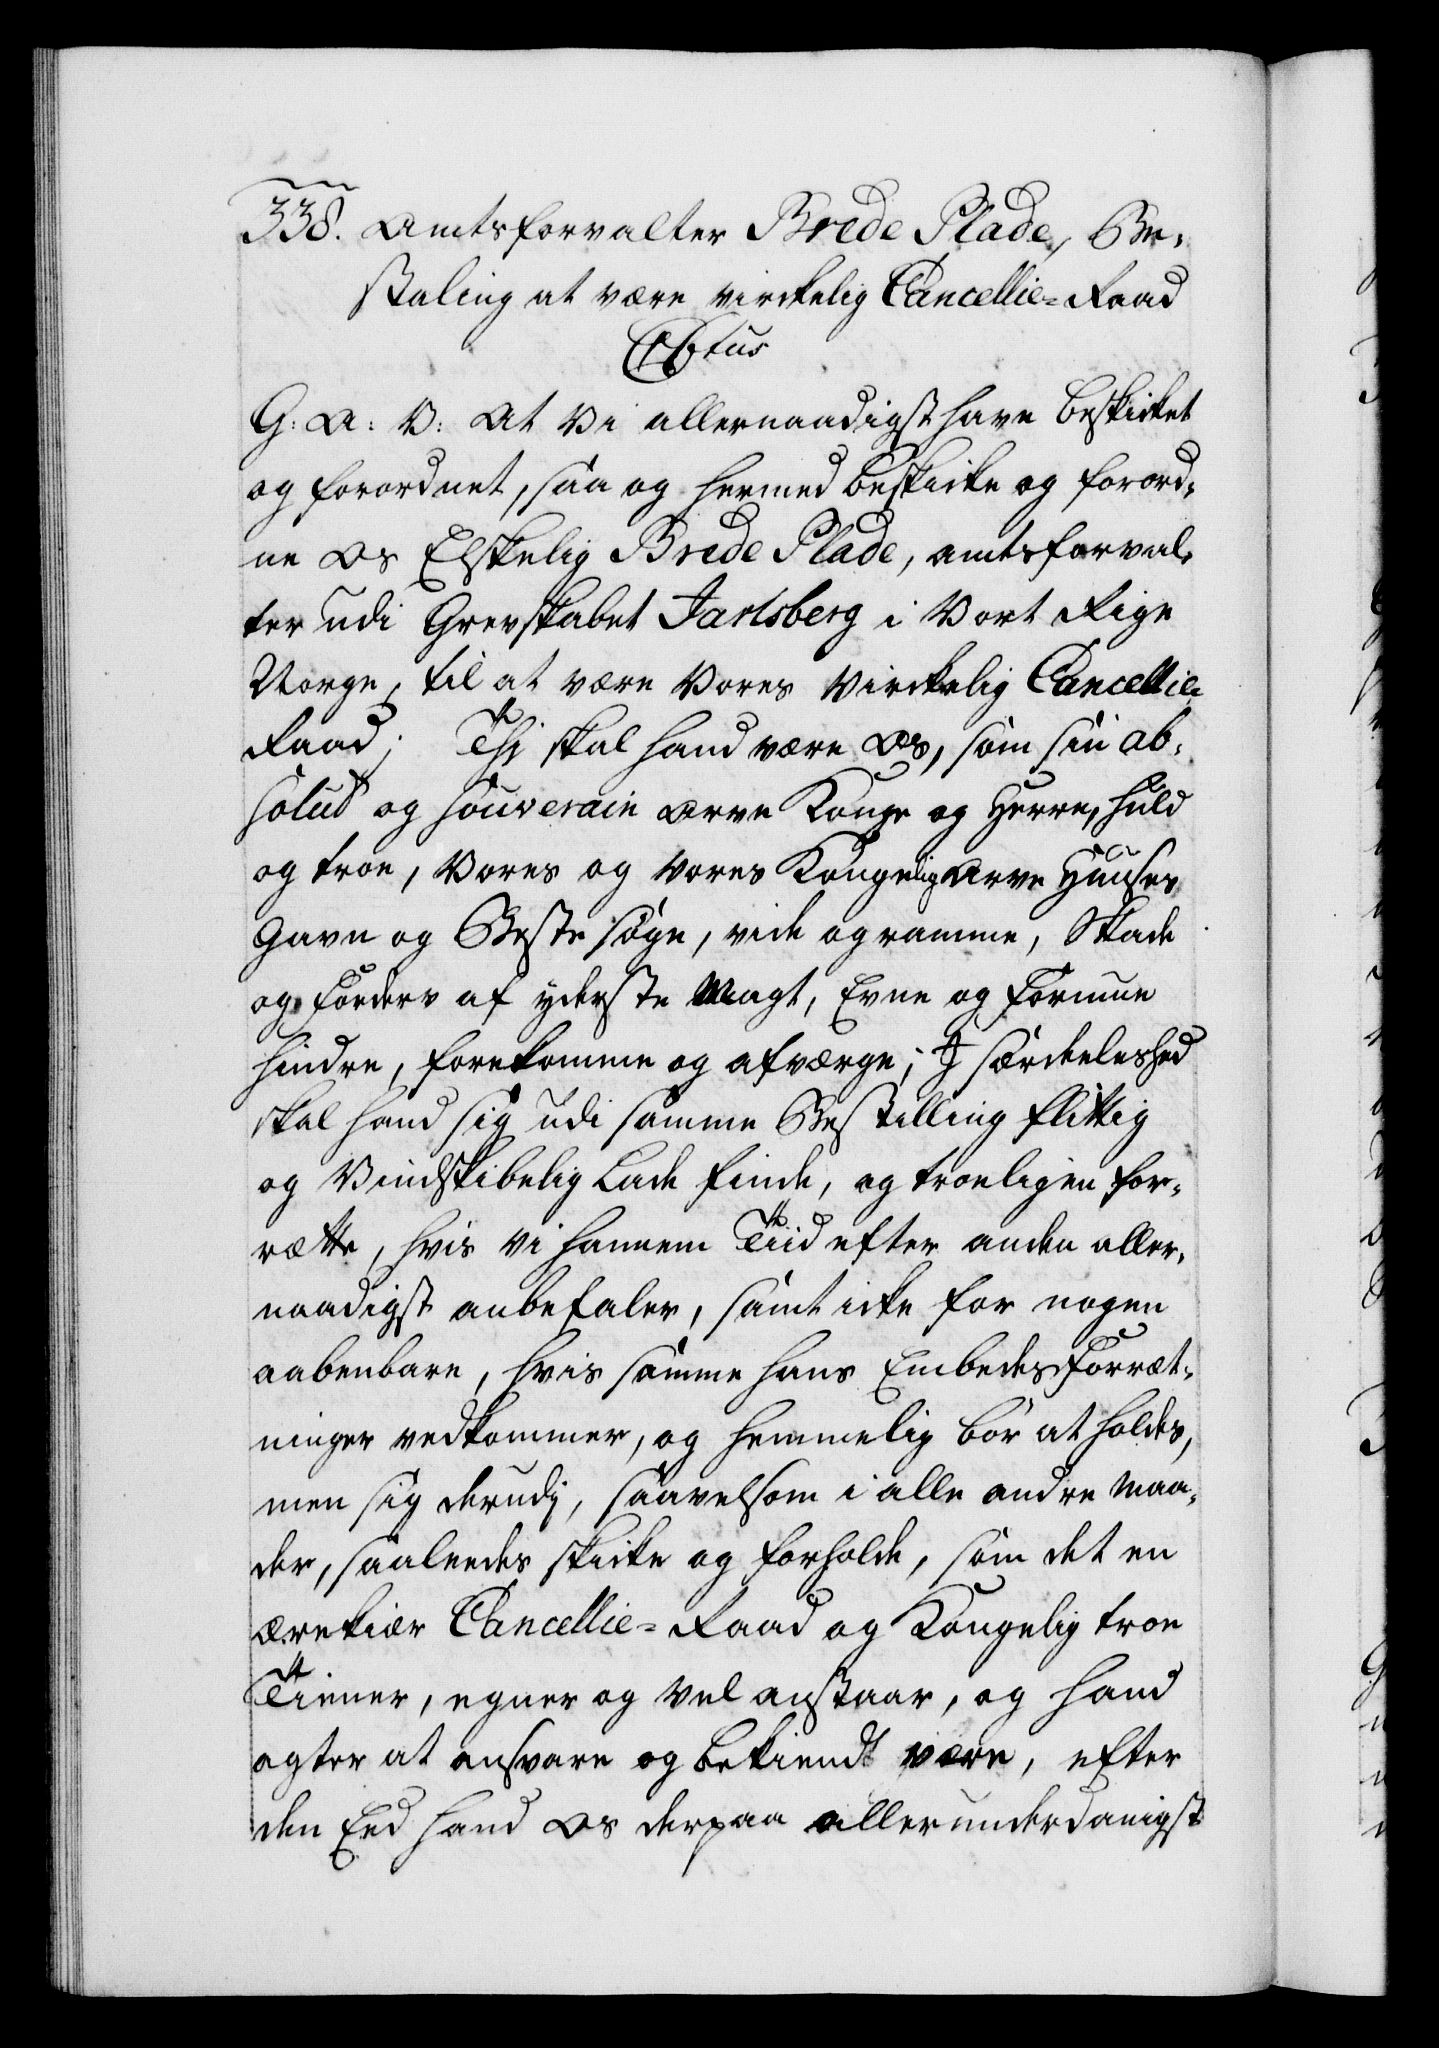 338. Amtsforvalter Brede Plade, Be-
staling at være virckelig Cancellie-Raad
G: A: V: At Vi allernaadigst have beskicket
og forordnet, saa og hermed beskicke og forord-
ne Os Elskelig Brede Plade, amtsforval-
ter udi Grevskabet Jarlsberg i Vort Rige
Norge, til at være Vores Virckelig Cancellie-
Raad; Thj skal hand være Os, som sin ab-
solut og souverain Arve Konge og Herre, huld
og troe, Vores og Vores Kongelig Arve Huuses
Gavn og Beste søge, vide og ramme, Skade
og Forderv af yderste Magt, Evne og Formue
hindre, forekomme og afværge; J særdeeleshed
skal hand sig udi samme Bestilling flittig
og Vindskibelig Lade finde, og troeligen for-
rætte, hvis vi hannem Tiid efter anden aller-
naadigst anbefaler, samt icke for nogen
aabenbare, hvis samme hans Embedes Forræt-
ninger vedkommer, og hemmelig bør at holdes,
men sig derudj, saavelsom i alle andre maa-
der, saaleedes skicke og forholde, som det en
ærekiær Cancellie-Raad og Kongelig troe
Tiener, egner og vel anstaar, og hand
agter at ansvare og bekiendt være, efter
den Eed hand Os derpaa allerunderdanigst